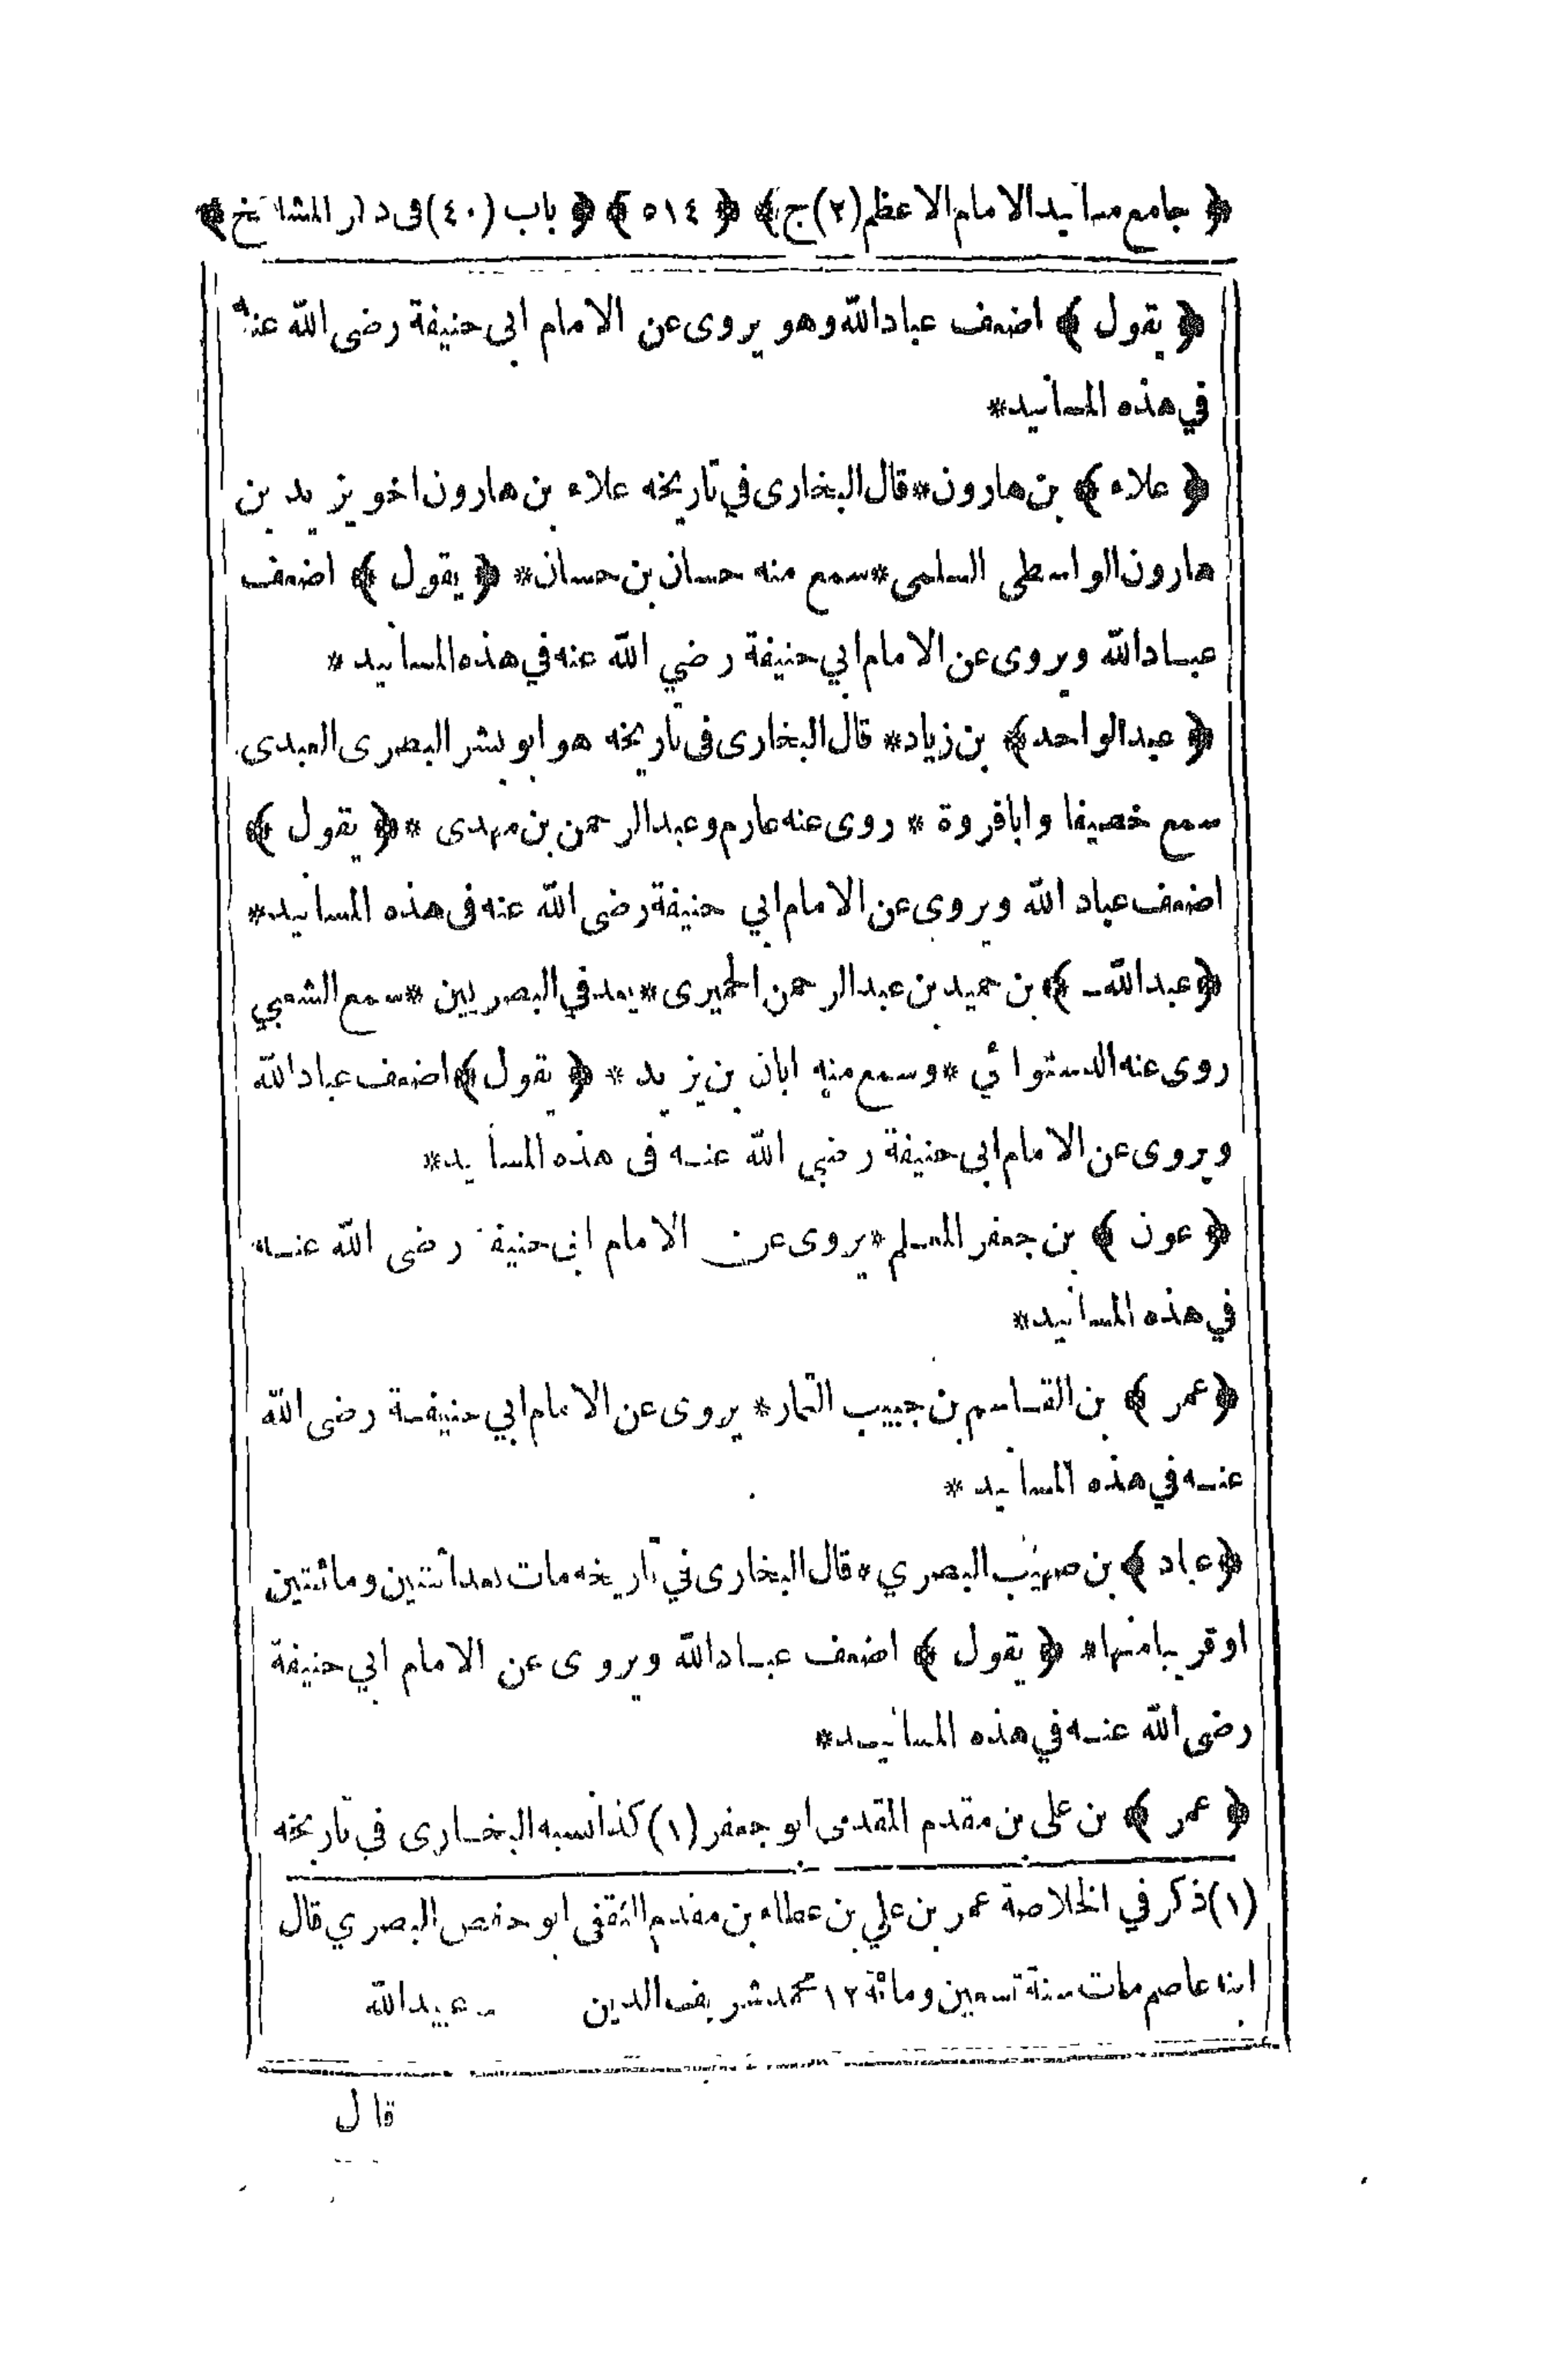 ﴿ جامع مسانيد الامام الاعظم (٢) ج ﴾ ﴿ ٥١٤ ﴾ ﴿ باب (٤٠) فى ذكر المشائخ ﴾
﴿ يقول ﴾ اضعف عباد الله وهو يروى عن الامام ابى حنيفة رضى الله عنه
في هذه المسانيد*
﴿ علاء ﴾ بن هارون* قال البخارى في تاريخه علاء بن هارون اخو يزيد بن
هارون الواسطى السلمى* سمع منه حسان بن حسان* ﴿ يقول ﴾ اضعف
عباد الله ويروى عن الامام ابي حنيفة رضي الله عنه في هذه المسانيد*
﴿ عبد الواحد ﴾ بن زياد* قال البخارى فى تاريخه هو ابو بشر البصرى العبدى
سمع خصيفا وابا فروة * روى عنه عارم وعبد الرحمن بن مهدى * ﴿ يقول ﴾
اضعف عباد الله ويروى عن الامام ابي حنيفة رضى الله عنه فى هذه المسانيد*
﴿ عبد الله ﴾ بن حميد بن عبد الرحمن الحميرى* يعد في البصريين* سمع الشعبي
روى عنه الدستوائي* وسمع منه ابان بن يزيد * ﴿ يقول ﴾ اضعف عباد الله
ويروى عن الامام ابى حنيفة رضي الله عنه فى هذه المسانيد*
﴿ عون ﴾ بن جعفر المعلم* يروى عن الامام ابى حنيفة رضى الله عنه
في هذه المسانيد*
﴿ عمر ﴾ بن القاسم بن حبيب التمار* يروى عن الامام ابي حنيفة رضى الله
عنه في هذه المسانيد *
﴿ عباد ﴾ بن صهيب البصري* قال البخارى في تاريخه مات بعد اثنتين ومائتين
او قريبا منها* ﴿ يقول ﴾ اضعف عباد الله ويروى عن الامام ابي حنيفة
رضى الله عنه في هذه المسانيد*
﴿ عمر ﴾ بن على بن مقدم المقدمى ابو جعفر (١) كذا نسبه البخارى في تاريخه
(١) ذكر في الخلاصة عمر بن علي بن عطاء بن مقدم الثقفى ابو حفص البصري قال
ابنه عاصم مات سنة تسعين ومائة ١٢ محمد شريف الدين ــ عبيد الله
قال